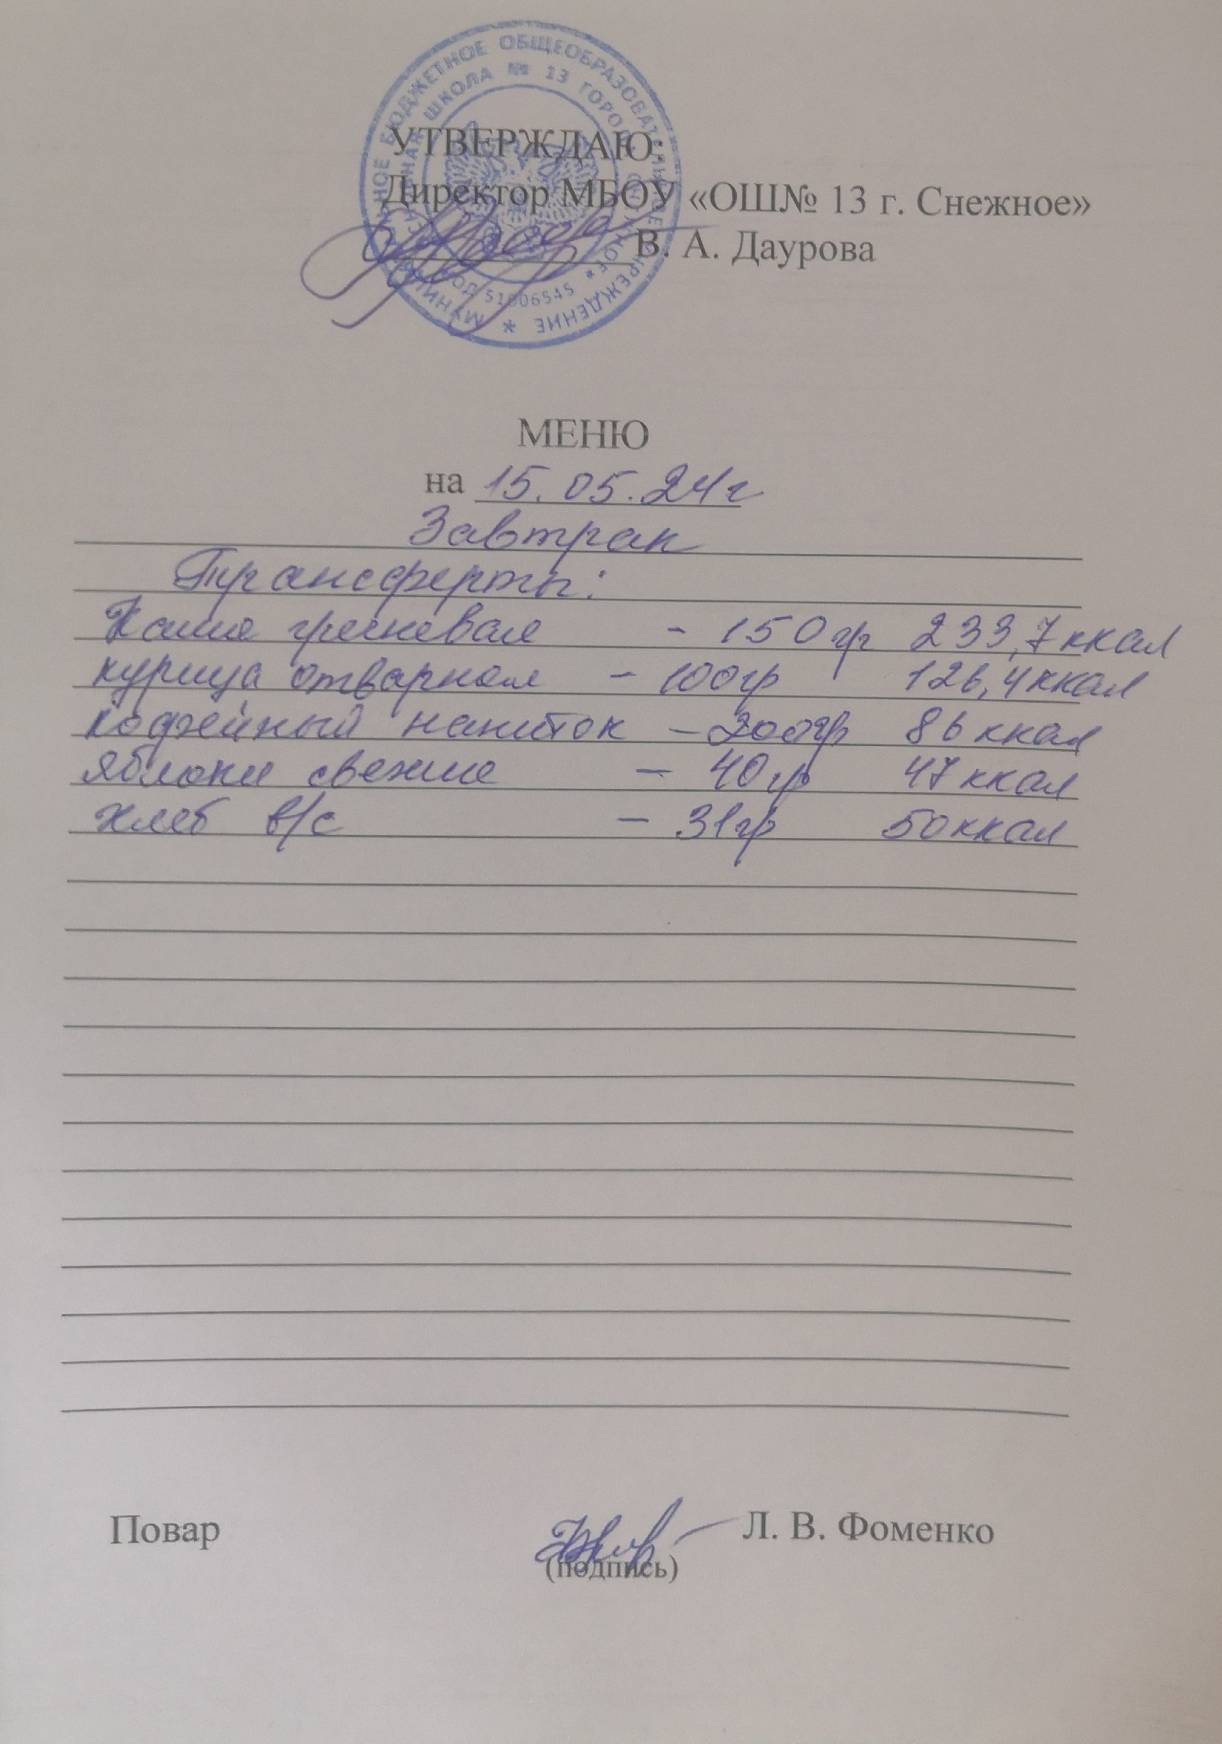 УТВЕРЖДАЮ:
Директор МБОУ «ОШ№ 13 г. Снежное»
В. А. Даурова
БЮДЖЕТНОЕ ОБЩЕОБРАЗОВАТЕЛЬНОЕ УЧРЕЖДЕНИЕ *
ШКОЛА № 13
51006545
МЕНЮ
на 15.05.24г
Завтрак
Трансферты:
Каша гречневая - 150гр 233,7ккал
курица отварная - 100гр 126,4ккал
кофейный напиток - 200гр 86ккал
яблоки свежие - 40гр 47ккал
хлеб в/с - 31гр 50ккал
Повар Л. В. Фоменко
(подпись)